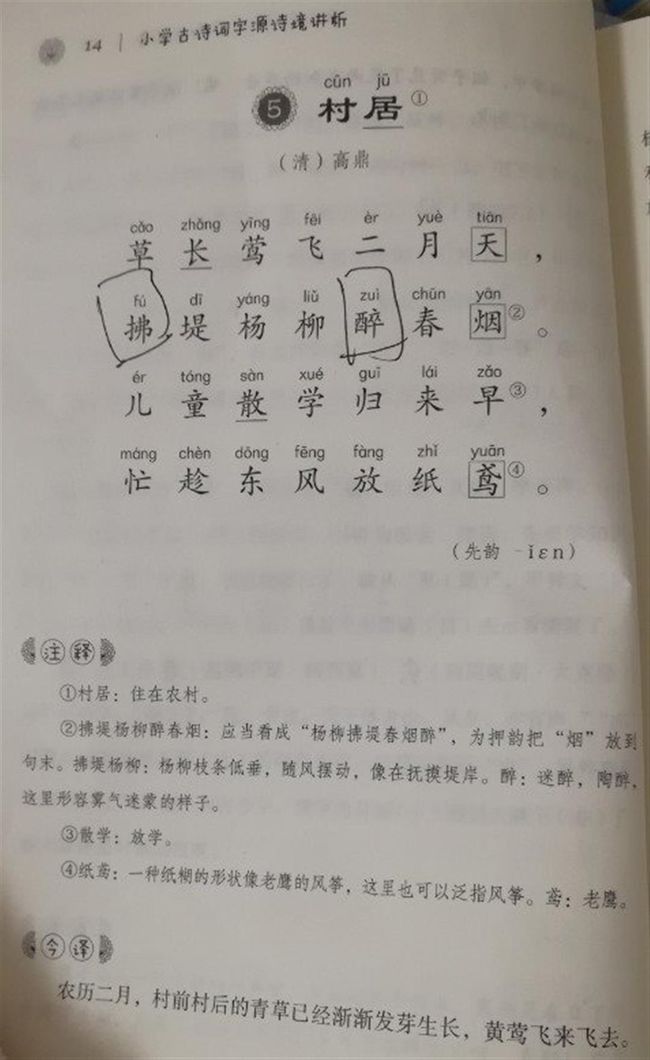 14 | 小学古诗词字源诗境讲析
cūn jū
5 村居①
（清）高鼎
cǎo zhǎng yīng fēi èr yuè tiān
草长莺飞二月天，
fú dī yáng liǔ zuì chūn yān
拂堤杨柳醉春烟②。
ér tóng sàn xué guī lái zǎo
儿童散学归来早③，
máng chèn dōng fēng fàng zhǐ yuān
忙趁东风放纸鸢④。
（先韵 -ĭɛn）
注释
①村居：住在农村。
②拂堤杨柳醉春烟：应当看成“杨柳拂堤春烟醉”，为押韵把“烟”放到
句末。拂堤杨柳：杨柳枝条低垂，随风摆动，像在抚摸堤岸。醉：迷醉，陶醉，
这里形容雾气迷蒙的样子。
③散学：放学。
④纸鸢：一种纸糊的形状像老鹰的风筝，这里也可以泛指风筝。鸢：老鹰。
今译
农历二月，村前村后的青草已经渐渐发芽生长，黄莺飞来飞去。